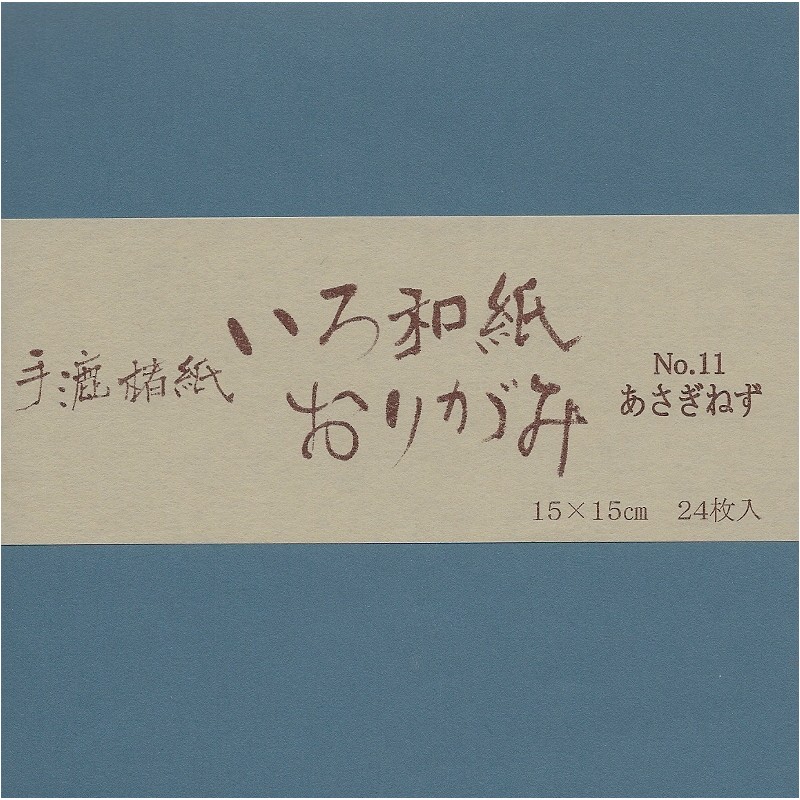 手漉楮紙
いろ和紙
おりがみ
No.11
あさぎねず
15×15㎝ 24枚入